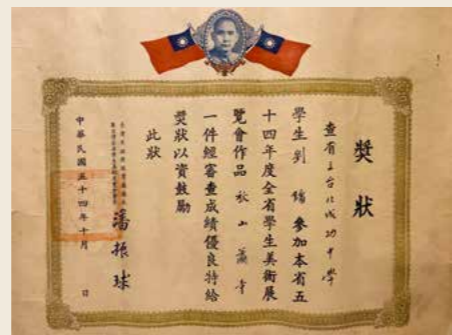 獎狀
查有立台北成功中學
學生劉墉參加本省五
十四年度全省學生美術展
覽會作品秋山蕭寺
一件經審查成績優良特給
獎狀以資鼓勵
此狀
潘振球
中華民國五十四年十月 日